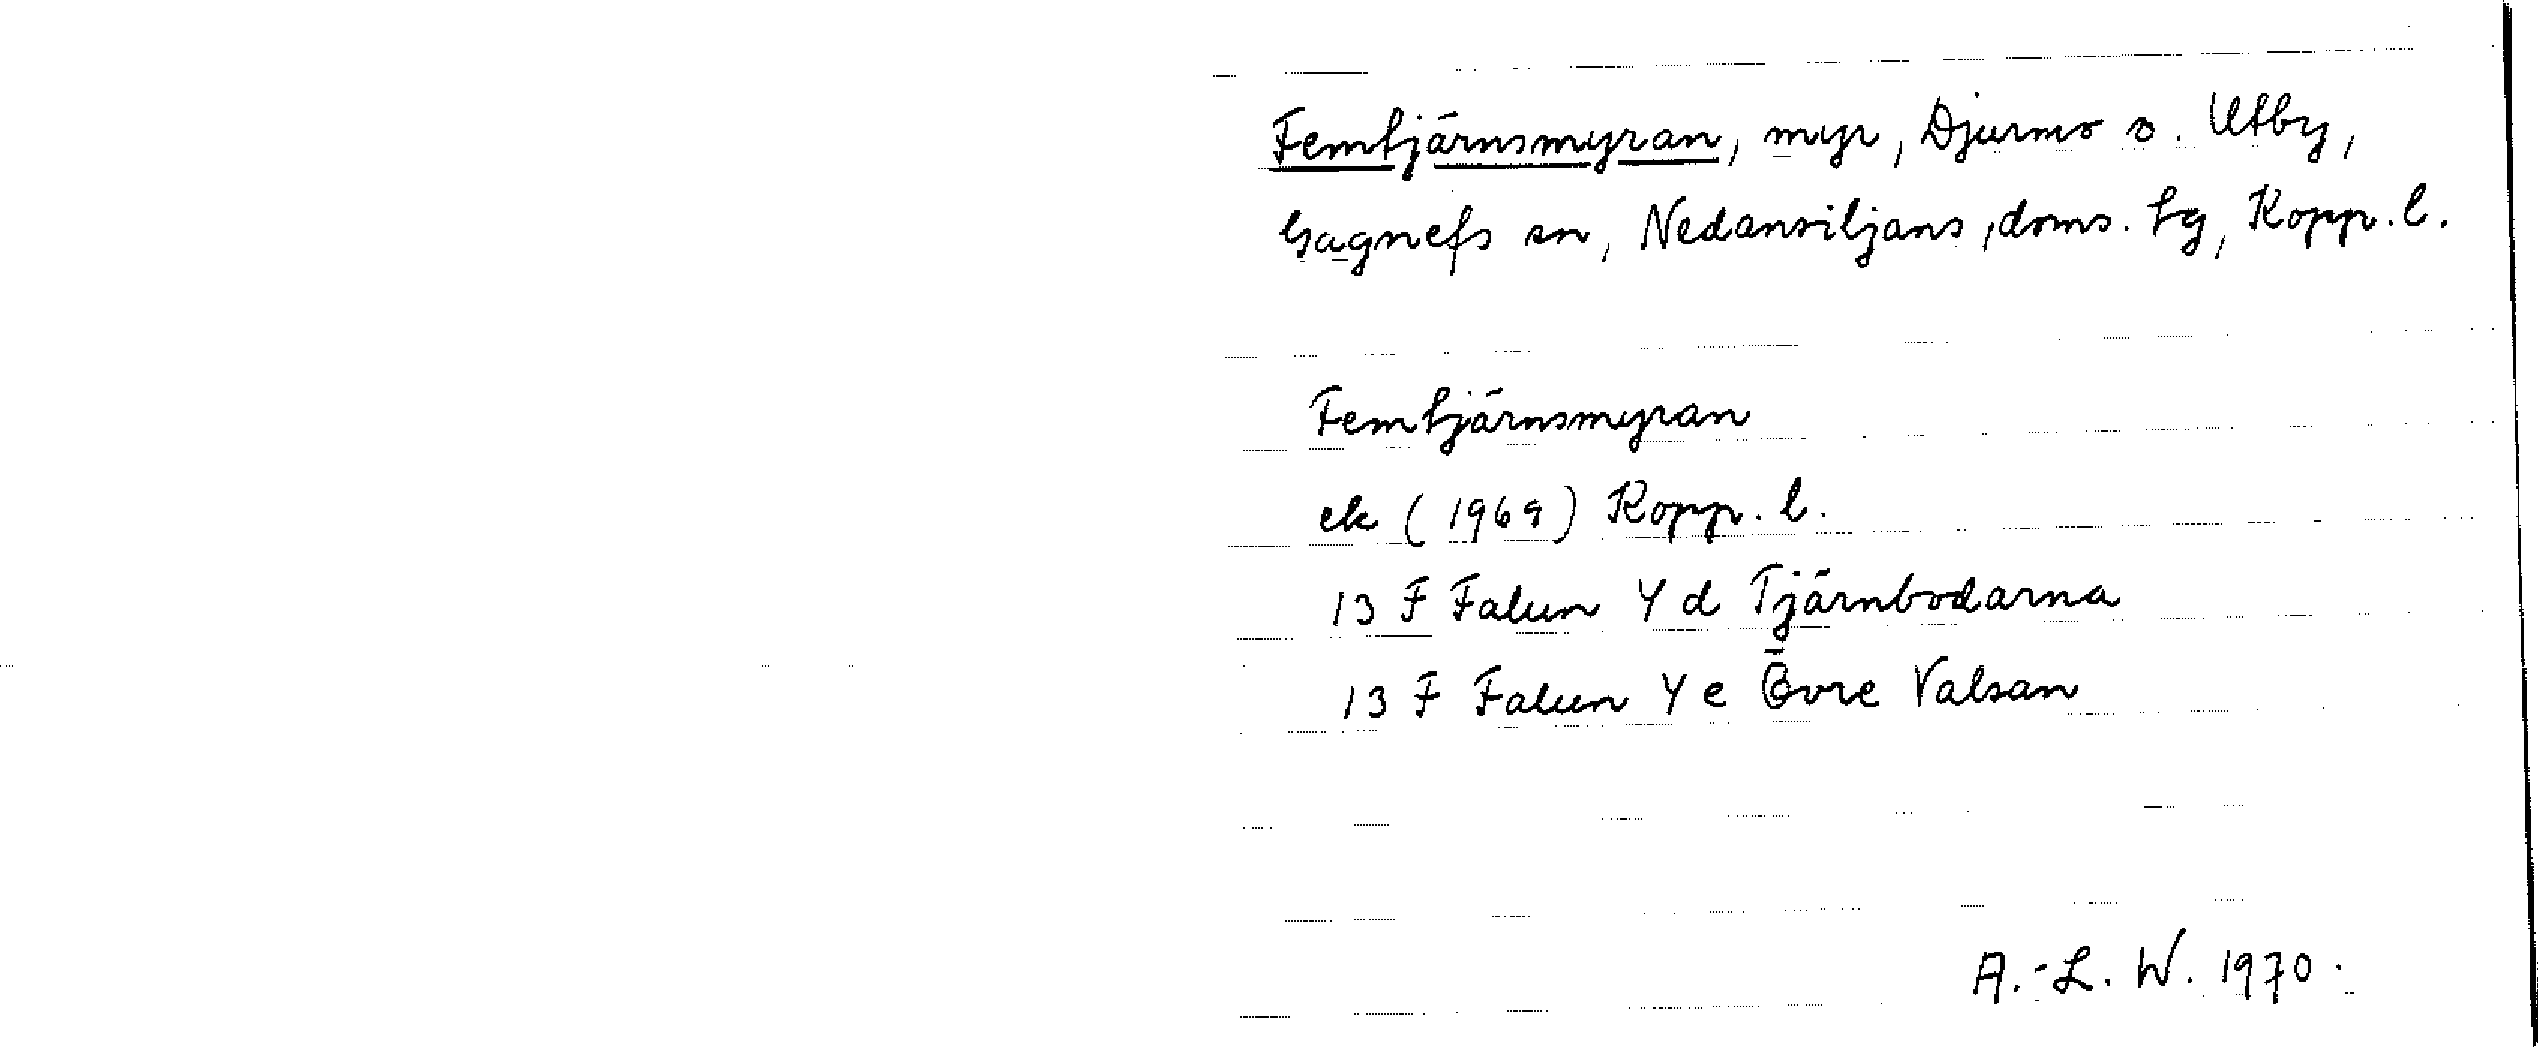 Femtjärnsmyran, myr, Djurmo o. Utby,
Gagnefs sn, Nedansiljans doms. tg, Kopp. l.
Femtjärnsmyran
ek (1969) Kopp. l.
13 F Falun 4 d Tjärnbodarna
13 F Falun 4 e Övre Valsan
A.-L. W. 1970.